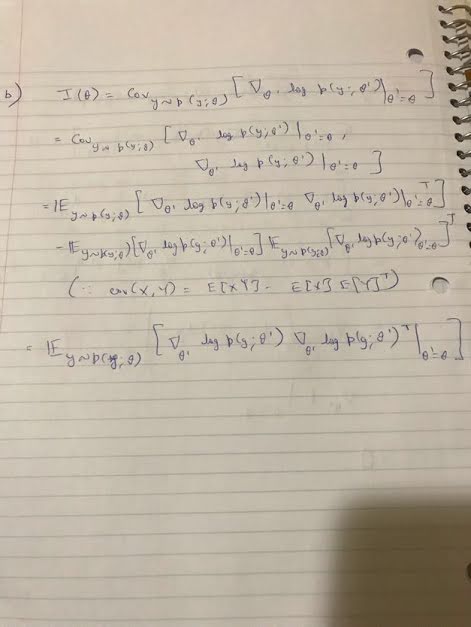 b) I(θ) = Cov_{y~p(y;θ)} [∇_{θ'} log p(y;θ')|_{θ'=θ}]
= Cov_{y~p(y;θ)} [∇_{θ'} log p(y;θ')|_{θ'=θ},
∇_{θ'} log p(y;θ')|_{θ'=θ}]
= 𝔼_{y~p(y;θ)} [∇_{θ'} log p(y;θ')|_{θ'=θ} ∇_{θ'} log p(y;θ')|_{θ'=θ}^T]
- 𝔼_{y~p(y;θ)} [∇_{θ'} log p(y;θ')|_{θ'=θ}] 𝔼_{y~p(y;θ)} [∇_{θ'} log p(y;θ')_{θ'=θ}]^T
(∵ cov(X,Y) = E[XY] - E[X] E[Y]^T)
= 𝔼_{y~p(y;θ)} [∇_{θ'} log p(y;θ') ∇_{θ'} log p(y;θ')^T|_{θ'=θ}]